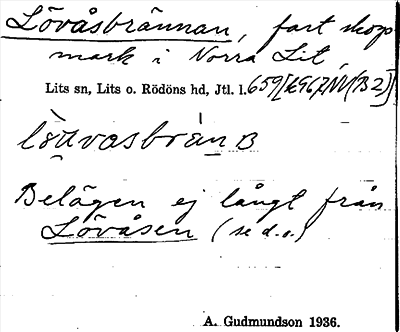 Lövåsbrännan, fast skogs
mark i Norra Lit,
Lits sn, Lits o. Rödöns hd, Jtl. l.
lövasbrän B
Belägen ej långt från
Lövåsen (se d.o.)
A. Gudmundson 1936.